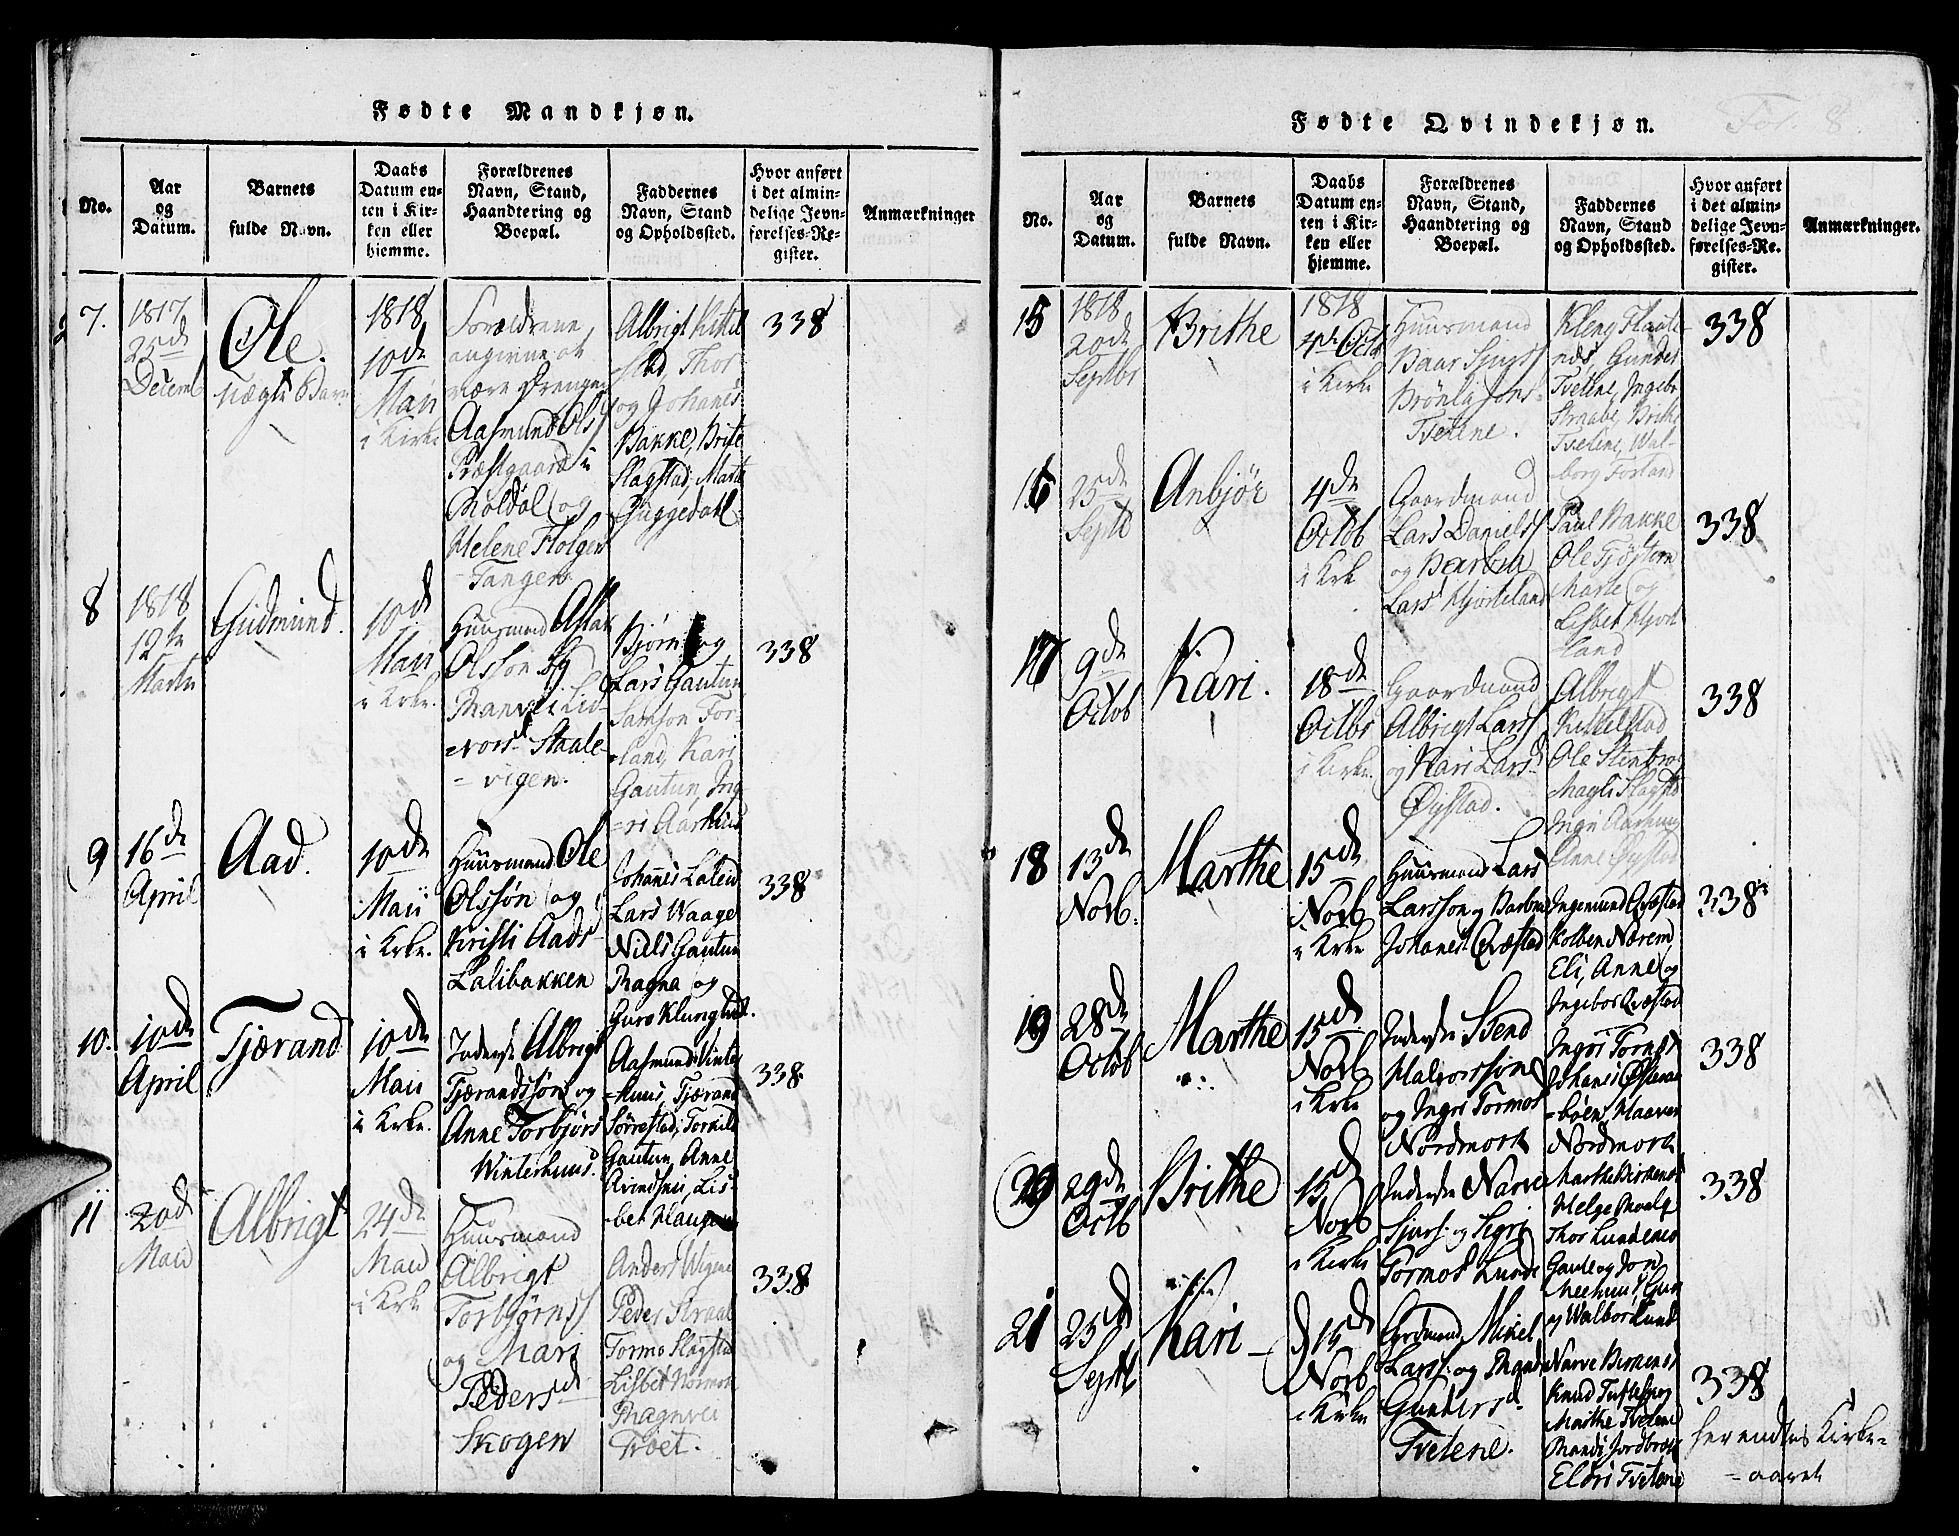 Fødte Mandkjøn.
No.
Aar
og
Datum.
Barnets
fulde Navn.
Daabs
Datum en-
ten i Kir-
ken eller
hjemme.
Forældrenes
Navn, Stand,
Haandtering og
Boepæl.
Faddernes
Navn, Stand
og Opholdssted.
Hvor anført
i det almin-
delige Jevn-
førelses-Re-
gister.
Anmærkninger
7.
1817
25de
Decemb
Ole.
1818
10de
Maii
i Kirke
Forældrene
angivne at
være Drenge
Aasmund Ols
Præstgaard i
Røldal og
Helene Holgen
Tangen
Albrigt Kittel
stad, Thor
og Johanes
Bakke, Brite
Slagstad, Marte
338
8
1818
12te
Marti
Gudmund.
10de
Maii
i Kirke.
Huusmand Aslak
Olsson og
Staale-
vigen.
Bjørn og
Lars Gautun
Samson For-
land, Kari
Gautun, Ing
ri Aarhuus
338
9
16de
April
Aad.
10de
Maii
i Kirke.
Huusmand Ole
Olssøn og
Kristi Aads
Lalibakken
Johanes Lalid
Lars Waage
Niels Gautun
Ragna og
Guro Klungtvedt.
338
10.
10de
April
Tjærand
10de
Maii
i Kirke.
Inderste Albrigt
Tjærandssøn og
Anne Torbjørs
Winterhuus
Aasmund Winter
-huus, Tjærand
Sørrestad, Torkild
Gautun, Anne
Lis-
-bet Haugen
338
11
20de
Maii
Albrigt
24de
Maii
i Kirke
Huusmand
Albrigt
Torbjørns
og Mari
Pedersd
Skogen
Anders Wigene
Peder Straab
Tormo Slagstad
Lisbet
Magnvei
Trøet.
338
Fødte Qvindekjøn.
Fol. 8.
No.
Aar
og
Datum.
Barnets
fulde Navn.
Daabs
Datum en-
ten i Kir-
ken eller
hjemme.
Forældrenes
Navn, Stand,
Haandtering og
Boepæl.
Faddernes
Navn, Stand
og Opholdssted.
Hvor anført
i det almin-
delige Jevn-
førelses-Re-
gister.
Anmærkninger.
15
1818
20de
Septbr
Brithe
1818
4de Octb
i Kirke
Huusmand
Tvetene.
Kleng Flaate-
næs, Gunder
Tvetene, Ingebr
Straabe, Brithe
Tvetene, Wal-
borg Forland
338
16
25de
Septb
Anbjør
4de
Octob
i Kirk
Gaardmand
Lars Daniels
og Barbra
Lars Hjorteland
Paul Bakke
Ole
Marte og
Lisbet Hjort
land
338
17
9de
Octob
Kari.
18de
Octbr
i Kirke
Gaardmand
Albrigt Lars
og Kari Larsd
Øystad.
Albrigt
Kittelstad
Ole Stenbroe
Magli Slagstd
Inger Aarhuus
Anne Øystad
338
18
13de
Novb.
Marthe
15de
Novb
i Kirke
Huusmand Lars
Larsson og Barbra
Johanesd Qvæstad
Ingemund Qvæstad
Kolben Nærem,
Eli, Anne og
Ingebor Qvæstad
338
19
28de
Octob
Marthe
15de
Novb
i Kirke
Inderste Svend
Halvorssøn
og Ingri Tormod
Nordmork
Ingri Tormod
Johanes Østerne
-bøen, Haaver
Nordmork
338
20
29de
Octb
Brithe
15d
Novb
i Kirke
Inderste Narve
Sjurs. og Segri
Tormod Lunde
Marthe Birkenes
Helge
Thor Lundenes
Gaute og Jon
Meehuus, Gun
og Walbor Lund
338
21
25de
Septb
Kari
15de
Novb
i Kirke
Grdmand Mikel
Larss. og Brande
Gundersd.
Tvetene.
Narve Birkenes
Knud Tuftes og
Marthe Tvetene
Brandi Jordbræk
Eldri Tvetene
338
her endtes Kirke-
= aaret